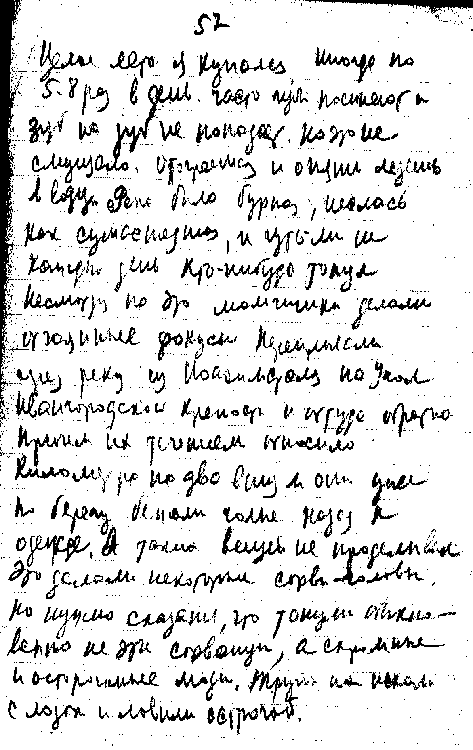 57
Целое лето я купался, иногда по
5-8 раз в день. Часто губы посинеют и
зуб на зуб не попадает. Но это не
смущало. Отогреешься и опять лезешь
в воду. Река была бурная, неслась
как сумасшедшая, и чуть ли не
каждый день кто-нибудь тонул
Несмотря на это мальчишки делали
отчаянные фокусы Переплывали
через реку из на
Ивангородской крепости и оттуда обратно
Причём их течением относило
километра на два вниз и они уже
по берегу бежали голые назад к
одежде. Я таких вещей не проделывал
Это делали некоторые сорви-головы.
Но нужно сказать, что тонули обыкно-
венно не эти сорванцы, а скромные
и осторожные люди. Трупы их искали
с лодок и ловили острогой.